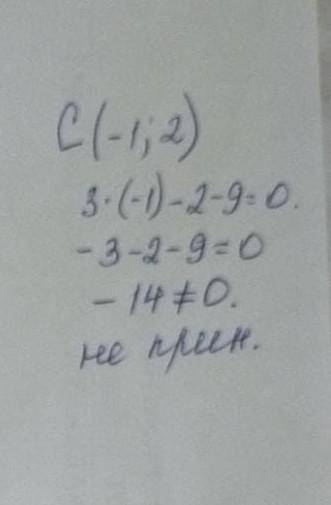 C(-1; 2)
3·(-1)-2-9=0.
-3-2-9=0
-14≠0.
не прин.